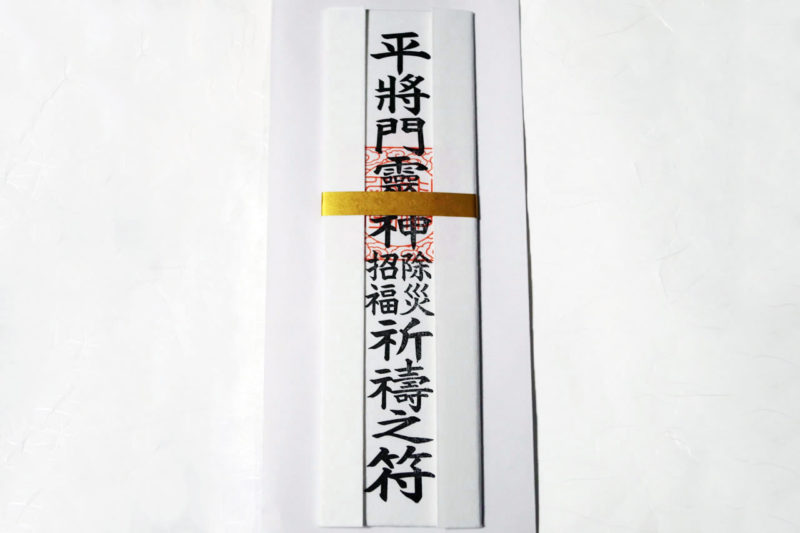 平將門靈神
除災
招福
祈禱之符